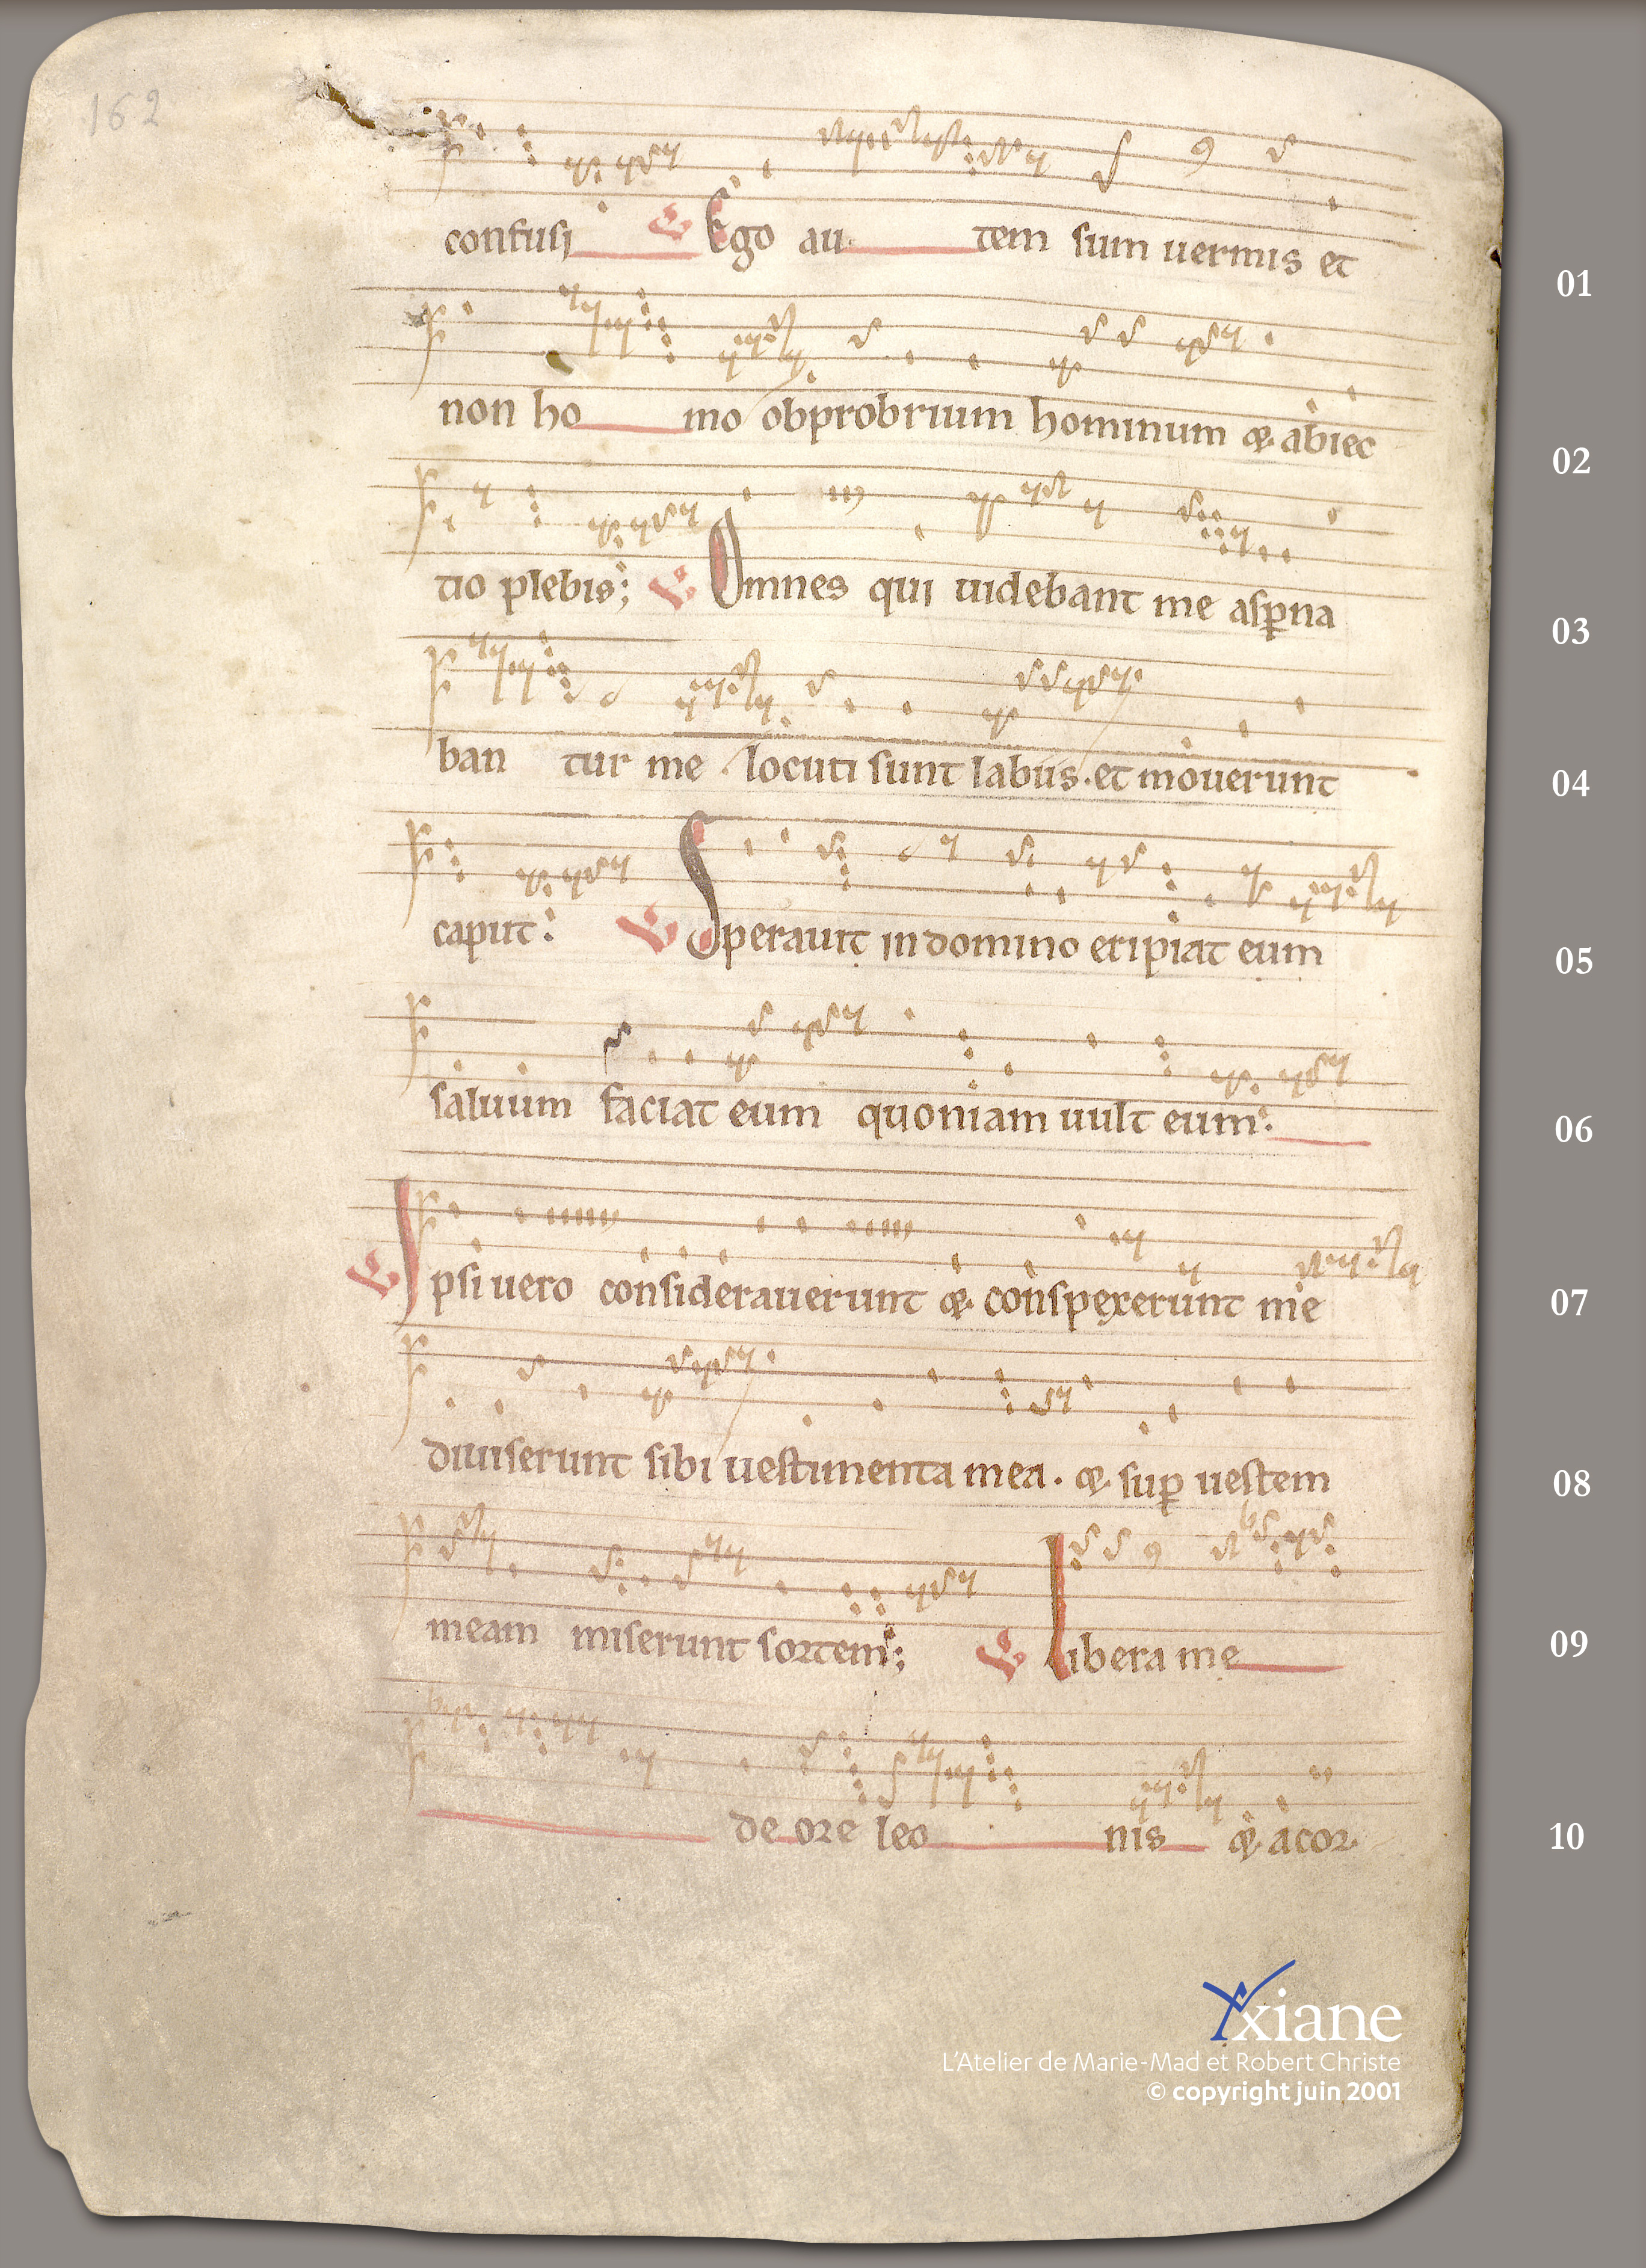 162
confusi ℣ Ego au tem sum uermis et
01
non ho mo obprobrium hominum &. abiec
02
tio plebis; ℣ Omnes qui uidebant me asꝑna
03
ban tur me. locuti sunt labiis. et mouerunt
04
caput: ℣ Sperauit in domino eripiat eum
05
saluum faciat eum quoniam uult eum:
06
℣ Ipsi uero considerauerunt &. conspexerunt me
07
diuiserunt sibi uestimenta mea. &. suꝑ uestem
08
meam miserunt sortem; ℣ Libera me
09
de ore leo nis &. a cor
10
Yxiane
L'Atelier de Marie-Mad et Robert Christe
© copyright juin 2001